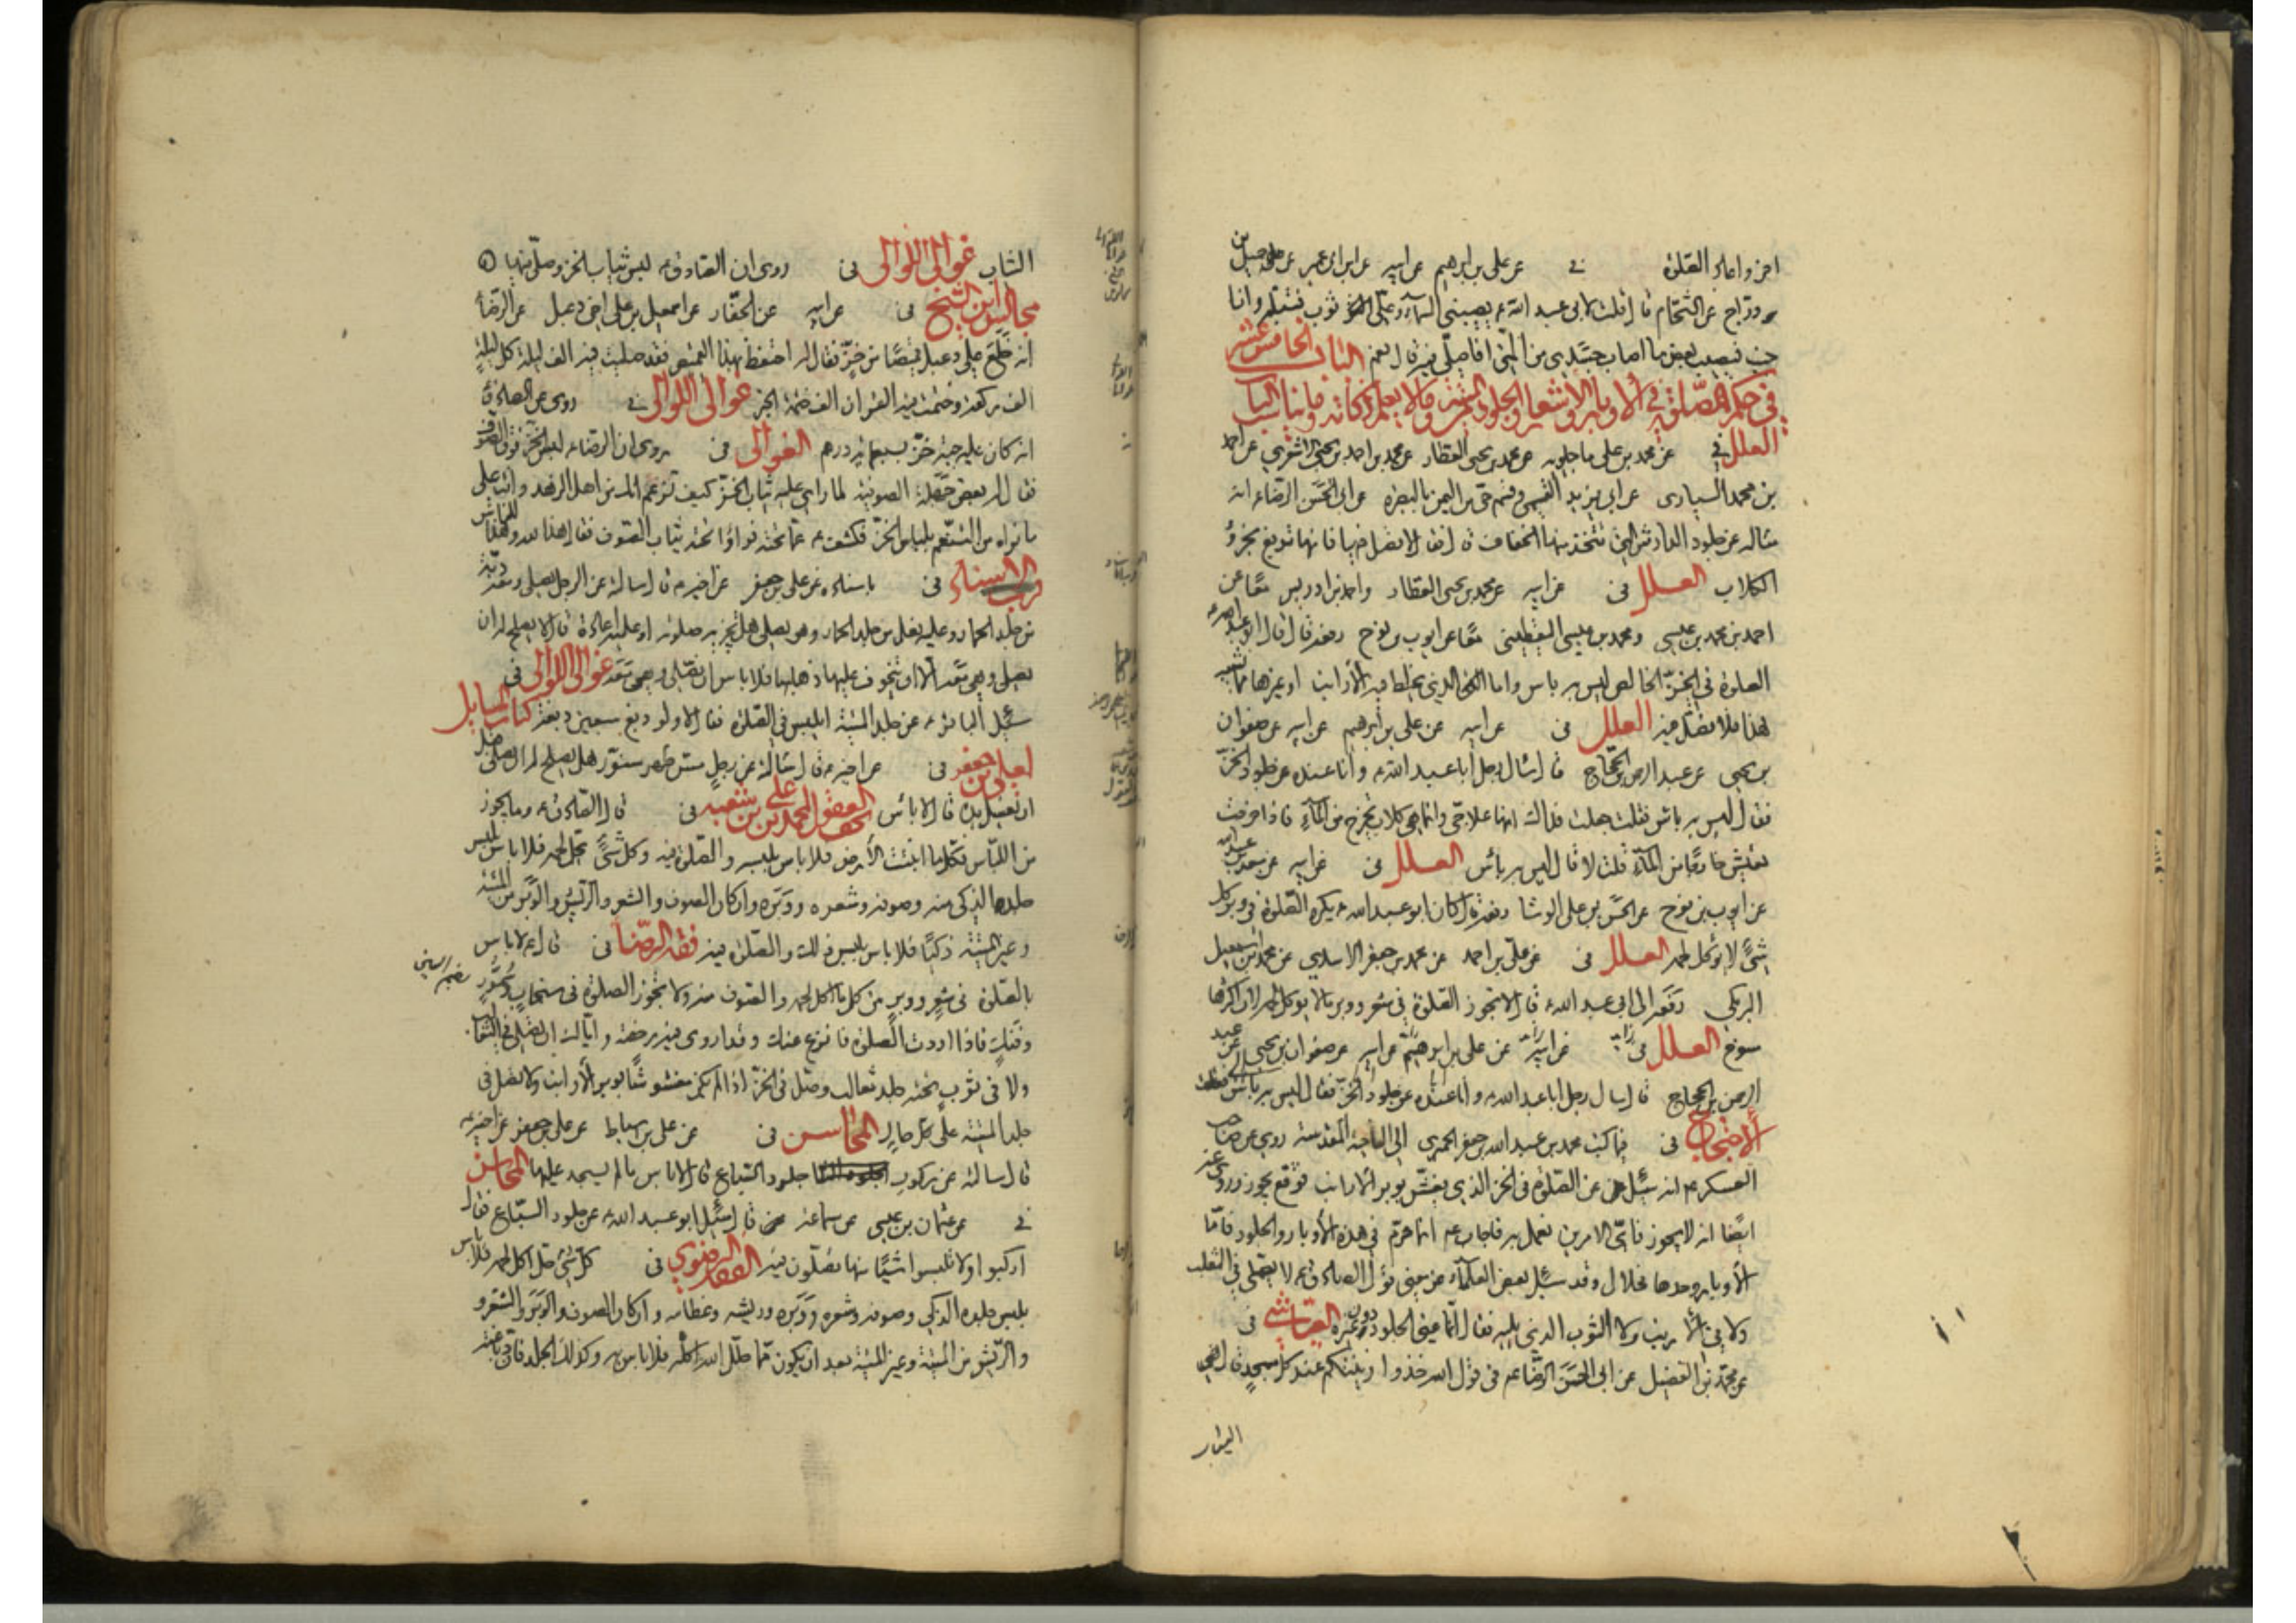 اخر واعاد الصلوة في عن علي بن ابرهيم عن ابيه عن ابن ابي عمير عن جميل بن
دراج عن الشحام قال قلت لابي عبد الله ع يصيبني السماء وعلى ثوب فتبله وانا
جنب فيصيب بعض ما اصاب جسدي من المني افاصلي فيه قال نعم الباب الخامس عشر
في حكم الصلوة في الاوبار والاشعار والجلود الميتة وما لا يعلم ذكاته وما يناسب الباب
العلل في عن محمد بن علي ماجيلويه عن محمد بن يحيى العطار عن محمد بن احمد بن يحيى الاشعري عن احمد
بن محمد السياري عن ابي يزيد القسمي وقسم حي من اليمن بالبصرة عن ابي الحسن الرضا ع انه
سئاله عن جلود الدارش التي يتخذ منها الخفاف قال فقال لا تصل فيها فانها تدبغ بخرؤ
الكلاب العلل في عن ابيه عن محمد بن يحيى العطار واحمد بن ادريس معا عن
احمد بن محمد بن عيسى ومحمد بن عيسى اليقطيني معا عن ايوب بن نوح رفعه قال قال ابو عبد الله ع
الصلوة في الخز الخالص ليس به باس واما الذي يخلط فيه الارانب او غيرها مما يشبه
هذا فلا تصل فيه العلل في عن ابيه عن علي بن ابرهيم عن ابيه عن صفوان
بن يحيى عن عبد الرحمن بن الحجاج قال سئال رجل ابا عبد الله ع وانا عنده عن جلود الخز
فقال ليس به باس فقلت جعلت فداك انها علاجي وانما هي كلاب تخرج من الماء فاذا خرجت
تعيش خارجا من الماء قلت لا قال ليس به بائس العلل في عن ابيه عن سعد بن عبد الله
عن ايوب بن نوح عن الحسن بن علي الوشا رفعه قال كان ابو عبد الله ع يكره الصلوة في وبر كل
شئ لا يؤكل لحمه العلل في عن علي بن احمد عن محمد بن جعفر الاسدي عن محمد بن اسمعيل
البرمكي رفعه الى ابي عبد الله ع قال لا تجوز الصلوة في شعر ووبر ما لا يؤكل لحمه لان اكثرها
مسوخ العلل في عن ابيه عن علي بن ابرهيم عن ابيه عن صفوان بن يحيى عن عبد
الرحمن بن الحجاج قال سال رجل ابا عبد الله ع وانا عنده عن جلود الخز فقال ليس به بائس
الاحتجاج في فيما كتب محمد بن عبد الله بن جعفر الحميري الى الناحية المقدسة روي عن صاحب
العسكر ع انه سئل عن الصلوة في الخز الذي يغش بوبر الارانب فوقع يجوز وروي عنه
ايضا انه لا يجوز فاي الامرين نعمل به فاجاب ع انما حرم في هذه الاوبار والجلود فاما
الاوبار وحدها فحلال وقد سئل بعض العلماء عن معنى قول الصادق ع لا يصلى في الثعلب
ولا في الارنب ولا الثوب الذي يليه فقال انما عنى الجلود دون غيره العياشي في
عن محمد بن الفضيل عن ابي الحسن الرضا ع في قول الله خذوا زينتكم عند كل مسجد قال هي
الثياب
الثياب غوالي اللوالي في روى ان الصادق ع لبس ثياب الخز وصلى فيها
مجالس ابن الشيخ في عن ابيه عن الحفار عن اسمعيل بن علي اخي دعبل عن الرضا ع
انه خلع على دعبل قميصا من خز فقال له احتفظ بهذا القميص فقد صليت فيه الف ليلة كل ليلة
الف ركعة وختمت فيه القران الف ختمة الخبر غوالي اللوالي في روى عن الصادق ع
انه كان عليه جبة خز بسبعمائة درهم الغوالي في روى ان الرضا ع لبس الخز فوق الصوف
فقال له بعض جهلة الصوفية لما راى عليه ثياب الخز كيف تزعم انك من اهل الزهد وانت على
ما نراه من التنعم بلباس الخز فكشف ع عما تحته فراوا تحته ثياب الصوف فقال هذا لله وهذا للناس
قرب الاسناد في باسناده عن علي بن جعفر عن اخيه ع قال سالته عن الرجل يصلي ومعه دبة
من جلد الحمار وعليه نعل من جلد الحمار وهو يصلي هل يجزيه صلوته او عليه اعادة قال لا يصلح له ان
يصلي وهي معه الا ان يتخوف عليها ذهابها فلا باس ان يصلي وهي معه غوالي اللوالي في
سئل الباقر ع عن جلد الميتة ايلبس في الصلوة فقال لا ولو دبغ سبعين دبغة كتاب المسايل
لعلي بن جعفر في عن اخيه ع قال سئالته عن رجل مس ظهر سنور هل يصلح له ان يصلي قبل
ان يغسل يده قال لا بائس تحف العقول لمحمد بن علي بن شعبه في قال الصادق ع وما يجوز
من اللباس فكل ما انبتت الارض فلا باس بلبسه والصلوة فيه وكل شئ يحل لحمه فلا باس بلبس
جلده الذكي منه وصوفه وشعره ووبره وان كان الصوف والشعر والريش والوبر من الميتة
وغير الميتة ذكيا فلا باس بلبس ذلك والصلوة فيه فقه الرضا في قال ع لا باس
بالصلوة في شعر ووبر من كل ما اكل لحمه والصوف منه ولا تجوز الصلوة في سنجاب وسمور
وفنك فاذا اردت الصلوة فانزع عنك وقد اروى فيه رخصة واياك ان تصلي في الثعالب
ولا في ثوب تحته جلد ثعالب وصل في الخز اذا لم يكن مغشوشا بوبر الارانب ولا تصل في
جلد الميتة على كل حال المحاسن في عن علي بن اسباط عن علي بن جعفر عن اخيه ع
قال سالته عن ركوب جلود السباع قال لا باس ما لم يسجد عليها المحاسن
في عن عثمان بن عيسى عن سماعة قال سئل ابو عبد الله ع عن جلود السباع فقال
اركبوا ولا تلبسوا شيئا منها تصلون فيه الفقه الرضوي في كل شئ حل اكل لحمه فلا باس
بلبس جلده الذكي وصوفه وشعره ووبره وريشه وعظامه وان كان الصوف والوبر والشعر و
والريش من الميتة وغير الميتة بعد ان يكون مما حلل الله اكله فلا باس به وكذلك الجلد فان دباغته